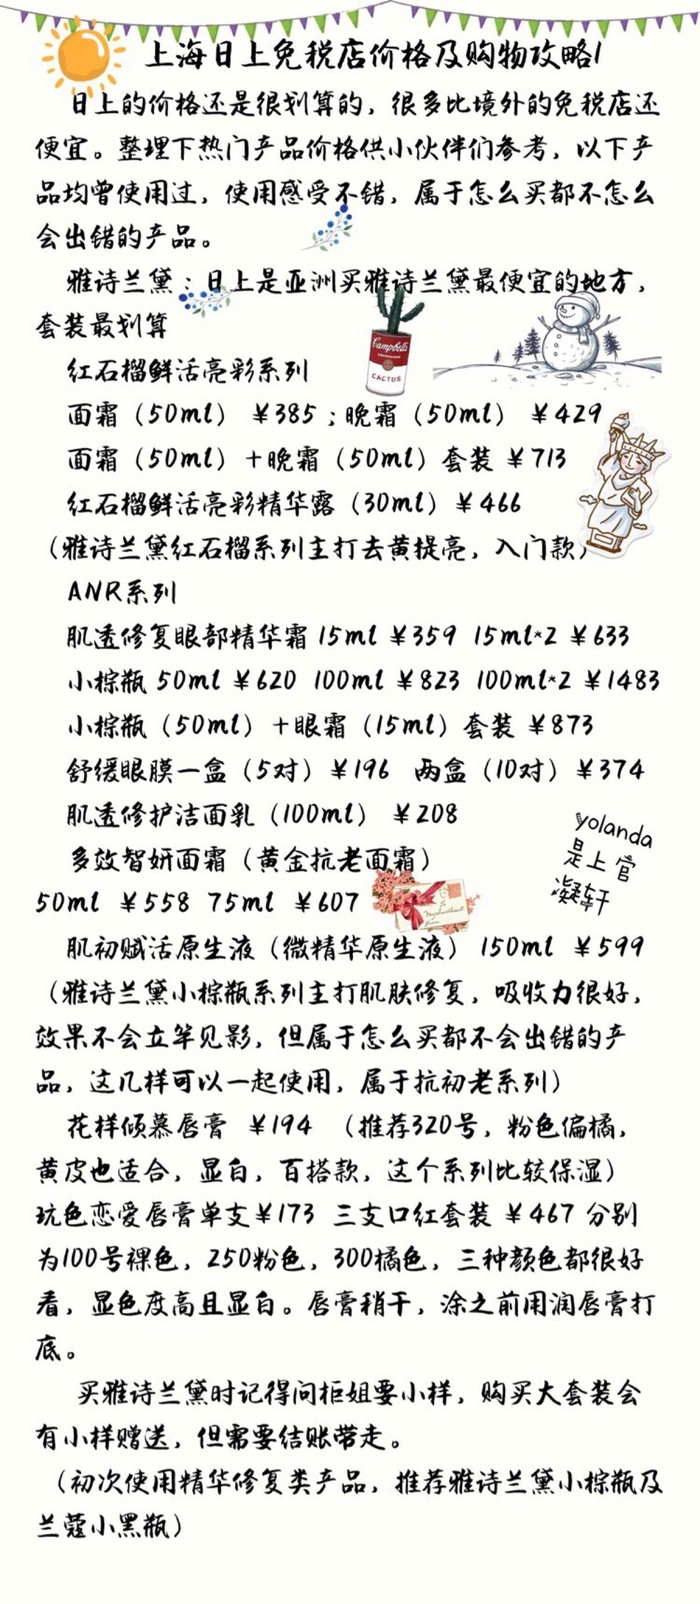 上海日上免税店价格及购物攻略1
日上的价格还是很划算的，很多比境外的免税店还
便宜。整理下热门产品价格供小伙伴们参考，以下产
品均曾使用过，使用感受不错，属于怎么买都不怎么
会出错的产品。
雅诗兰黛：日上是亚洲买雅诗兰黛最便宜的地方，
套装最划算
Campbell's
CACTUS
红石榴鲜活亮彩系列
面霜（50ml） ￥385；晚霜（50ml） ￥429
面霜（50ml）＋晚霜（50ml）套装 ￥713
红石榴鲜活亮彩精华露（30ml）￥466
（雅诗兰黛红石榴系列主打去黄提亮，入门款）
ANR系列
肌透修复眼部精华霜 15ml ￥359 15ml*2 ￥633
小棕瓶 50ml ￥620 100ml ￥823 100ml*2 ￥1483
小棕瓶（50ml）＋眼霜（15ml）套装 ￥873
舒缓眼膜一盒（5对）￥196 两盒（10对）￥374
肌透修护洁面乳（100ml） ￥208
yolanda
是上官
凝轩
多效智妍面霜（黄金抗老面霜）
50ml ￥558 75ml ￥607
肌初赋活原生液（微精华原生液） 150ml ￥599
（雅诗兰黛小棕瓶系列主打肌肤修复，吸收力很好，
效果不会立竿见影，但属于怎么买都不会出错的产
品，这几样可以一起使用，属于抗初老系列）
花样倾慕唇膏 ￥194 （推荐320号，粉色偏橘，
黄皮也适合，显白，百搭款，这个系列比较保湿）
玩色恋爱唇膏单支￥173 三支口红套装 ￥467 分别
为100号裸色，250粉色，300橘色，三种颜色都很好
看，显色度高且显白。唇膏稍干，涂之前用润唇膏打
底。
买雅诗兰黛时记得问柜姐要小样，购买大套装会
有小样赠送，但需要结账带走。
（初次使用精华修复类产品，推荐雅诗兰黛小棕瓶及
兰蔻小黑瓶）